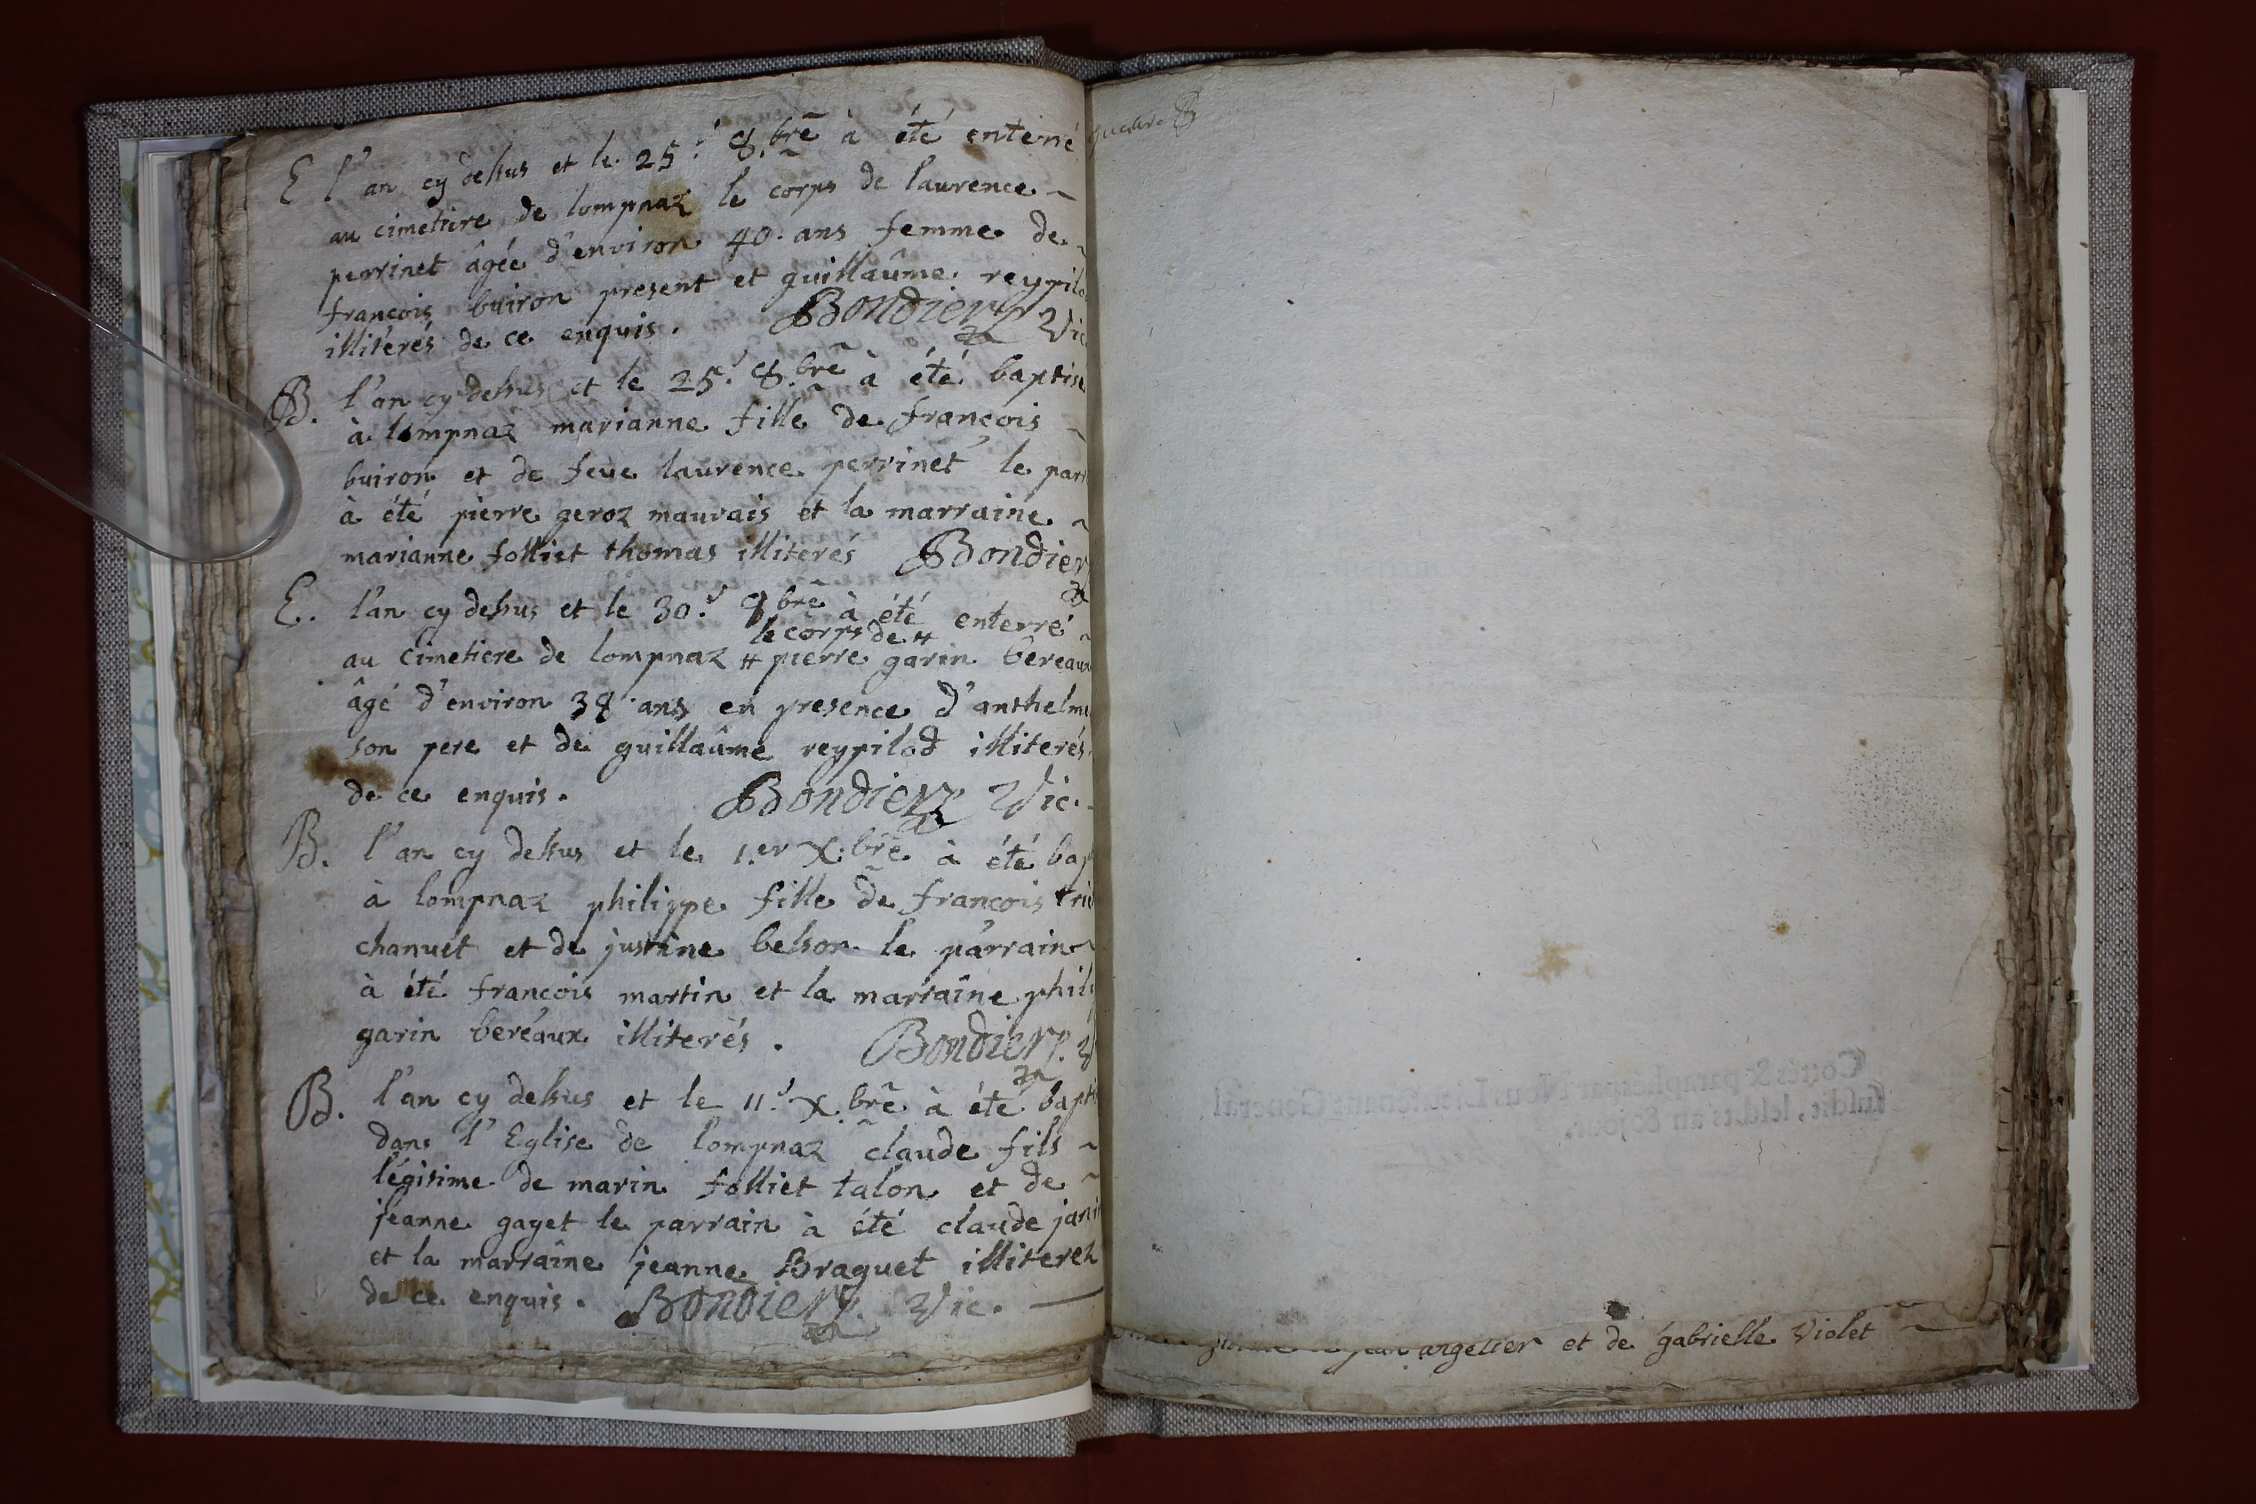 E l'an cy dessus et le 25.e 8.bre à été enterré
au cimetiere de lompnaz le corps de laurence
perrinet âgée d'environ 40. ans femme de
francois buiron present et guillaûme reypilod
illiterés de ce enquis. Bondier Vic
B. l'an cy dessus et le 25.e 8.bre à été baptise
à lompnaz marianne fille de francois
buiron et de feue laurence perrinet le par
à été pierre geroz mauvais et la marraine
marianne folliet thomas illiterés Bondier
E. l'an cy dessus et le 30.e 9bre à été enterré
le corps de #
au cimetiere de lompnaz # pierre garin béreaux
âgé d'environ 38 ans en presence d'anthelme
son pere et de guillaûme reypilod illiterés
de ce enquis. Bondier Vic.
B. l'an cy dessus et le 1.er X.bre à été bap
à lompnaz philippe fille de francois
chanuet et de justine besson le parrain
à été francois martin et la marraine phili
garin beréaux illiterés. Bondier
B. l'an cy dessus et le 11.e X.bre à été bapti
dans l'Eglise de lompnaz claude fils
légitime de marin folliet talon et de
jeanne gayet le parrain à été claude janin
et la marraîne jeanne Braguet illiterez
de ce enquis. Bondier Vic.
Cottés & paraphés par Nous Lieutenant General
susdit, lesdits an & jour.
jean angelier et de gabrielle Violet